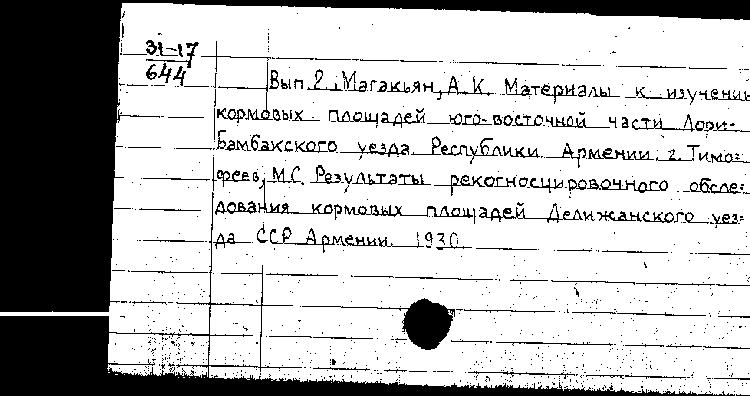 31-17
644
Вып. 2. Магакьян, А. К. Материалы к изучению
кормовых площадей юго-восточной части Лори-
Бамбакского уезда Республики Армении. 2. Тимо=
феев, М.С. Результаты рекогносцировочного обсле=
дования кормовых площадей Делижанского уез=
да ССР Армении. 1930.